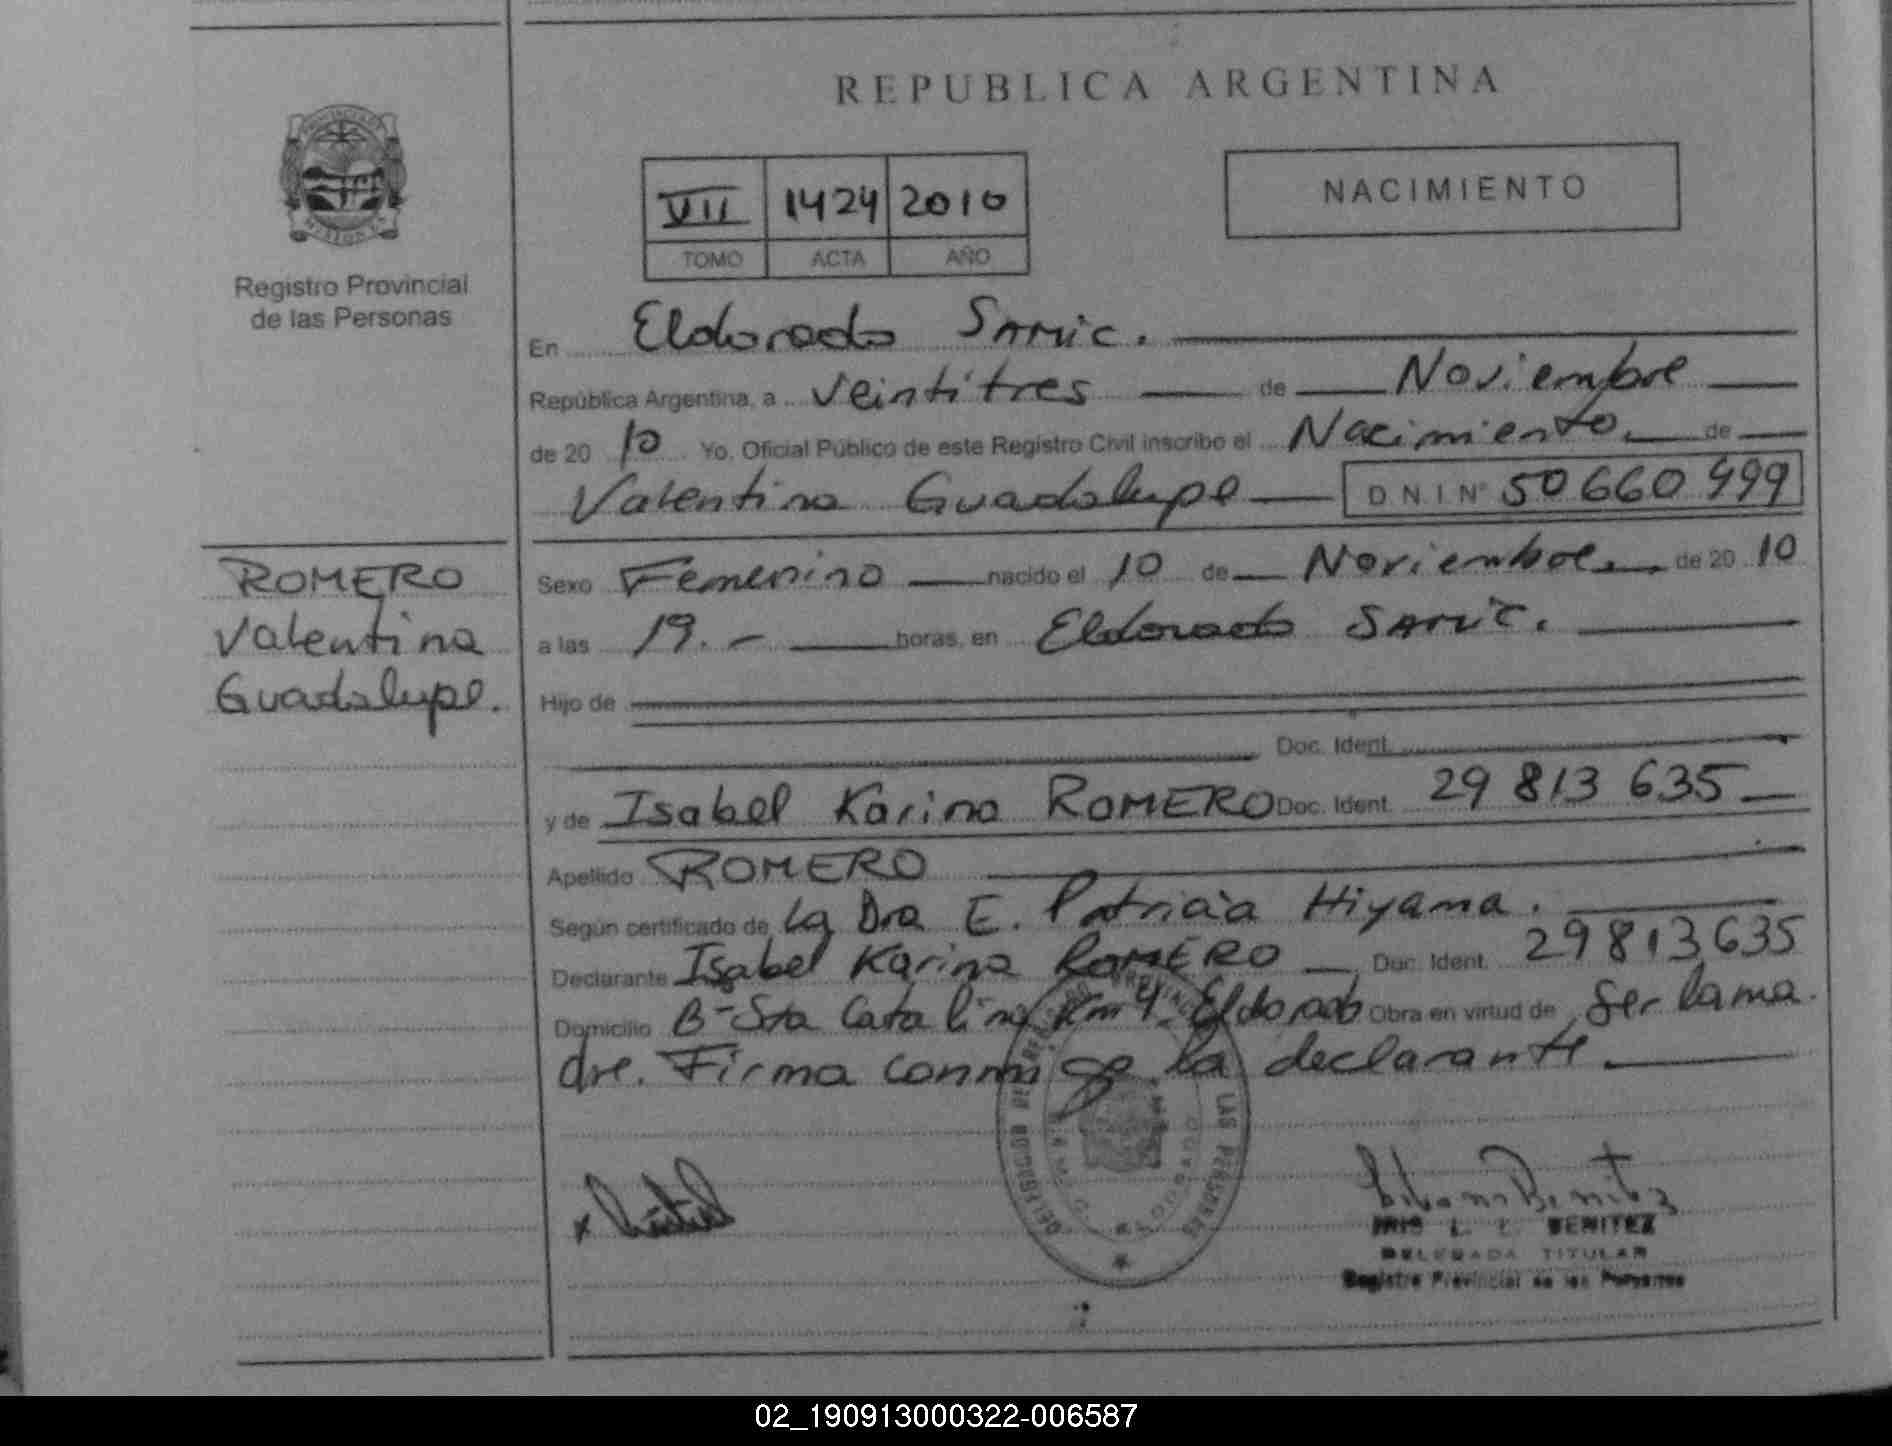 REPUBLICA ARGENTINA
VII 1424 2010
TOMO ACTA AÑO
NACIMIENTO
Registro Provincial
de las Personas
En Eldorado SAMIC.
República Argentina, a veintitres de Noviembre
de 20 10 Yo, Oficial Público de este Registro Civil inscribo el Nacimiento de
Valentina Guadalupe D.N.I Nº 50660999
ROMERO
Valentina
Guadalupe.
Sexo Femenino nacido el 10 de Noviembre de 20 10
a las 19.- horas, en Eldorado SAMIC.
Hijo de
Doc. Ident.
y de Isabel Karina ROMERO Doc. Ident. 29 813 635
Apellido ROMERO
Según certificado de la Dra E. Patricia Hiyama.
Declarante Isabel Karina ROMERO Doc. Ident. 29813635
Domicilio B- Sta Catalina Km 4- Eldorado Obra en virtud de Ser la ma
dre. Firma conmigo la declarante
LAS PERSONAS
BENITEZ
DELEGADA TITULAR
Registro Provincial de las Personas
02_190913000322-006587